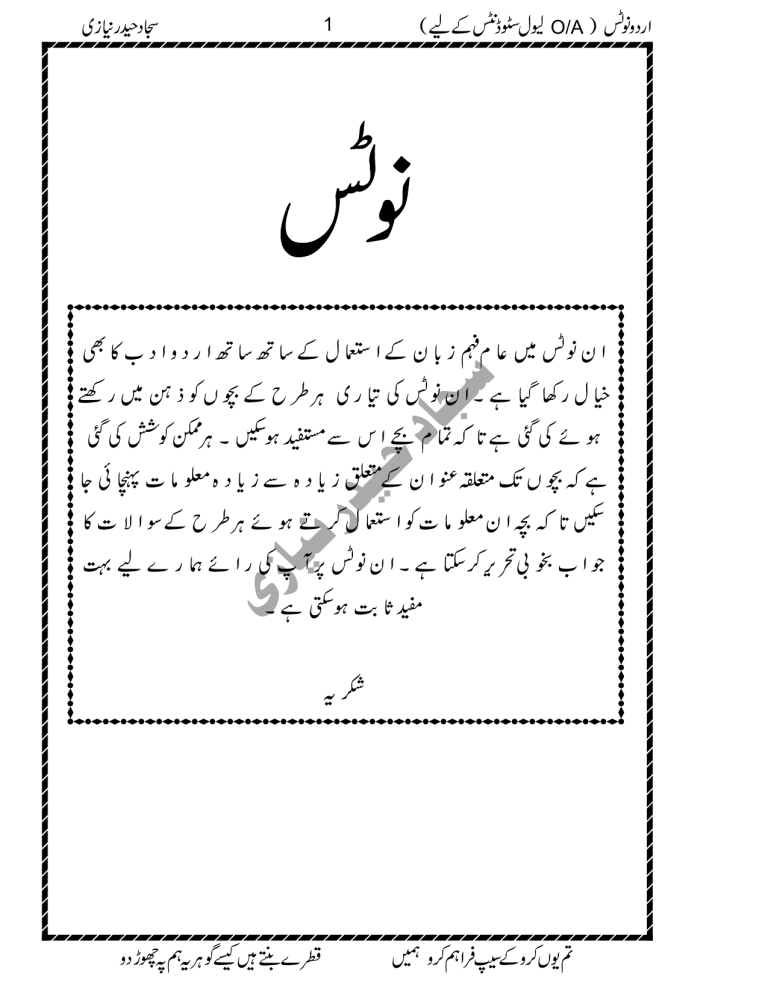 اردو نوٹس ( O/A لیول سٹوڈنٹس کے لیے ) 1 سجاد حیدر نیازی
نوٹس
ان نوٹس میں عام فہم زبان کے استعمال کے ساتھ ساتھ اردو ادب کا بھی
خیال رکھا گیا ہے ۔ ان نوٹس کی تیاری ہر طرح کے بچوں کو ذہن میں رکھتے
ہوئے کی گئی ہے تاکہ تمام بچے اس سے مستفید ہوسکیں ۔ ہر ممکن کوشش کی گئی
ہے کہ بچوں تک متعلقہ عنوان کے متعلق زیادہ سے زیادہ معلومات پہنچائی جا
سکیں تاکہ بچہ ان معلومات کو استعمال کرتے ہوئے ہر طرح کے سوالات کا
جواب بخوبی تحریر کرسکتا ہے ۔ ان نوٹس پر آپ کی رائے ہمارے لیے بہت
مفید ثابت ہوسکتی ہے ۔
شکریہ
سجاد حیدر نیازی
تم یوں کرو کے سیپ فراہم کرو ہمیں قطرے بنتے ہیں کیسے گوہر یہ ہم پہ چھوڑ دو